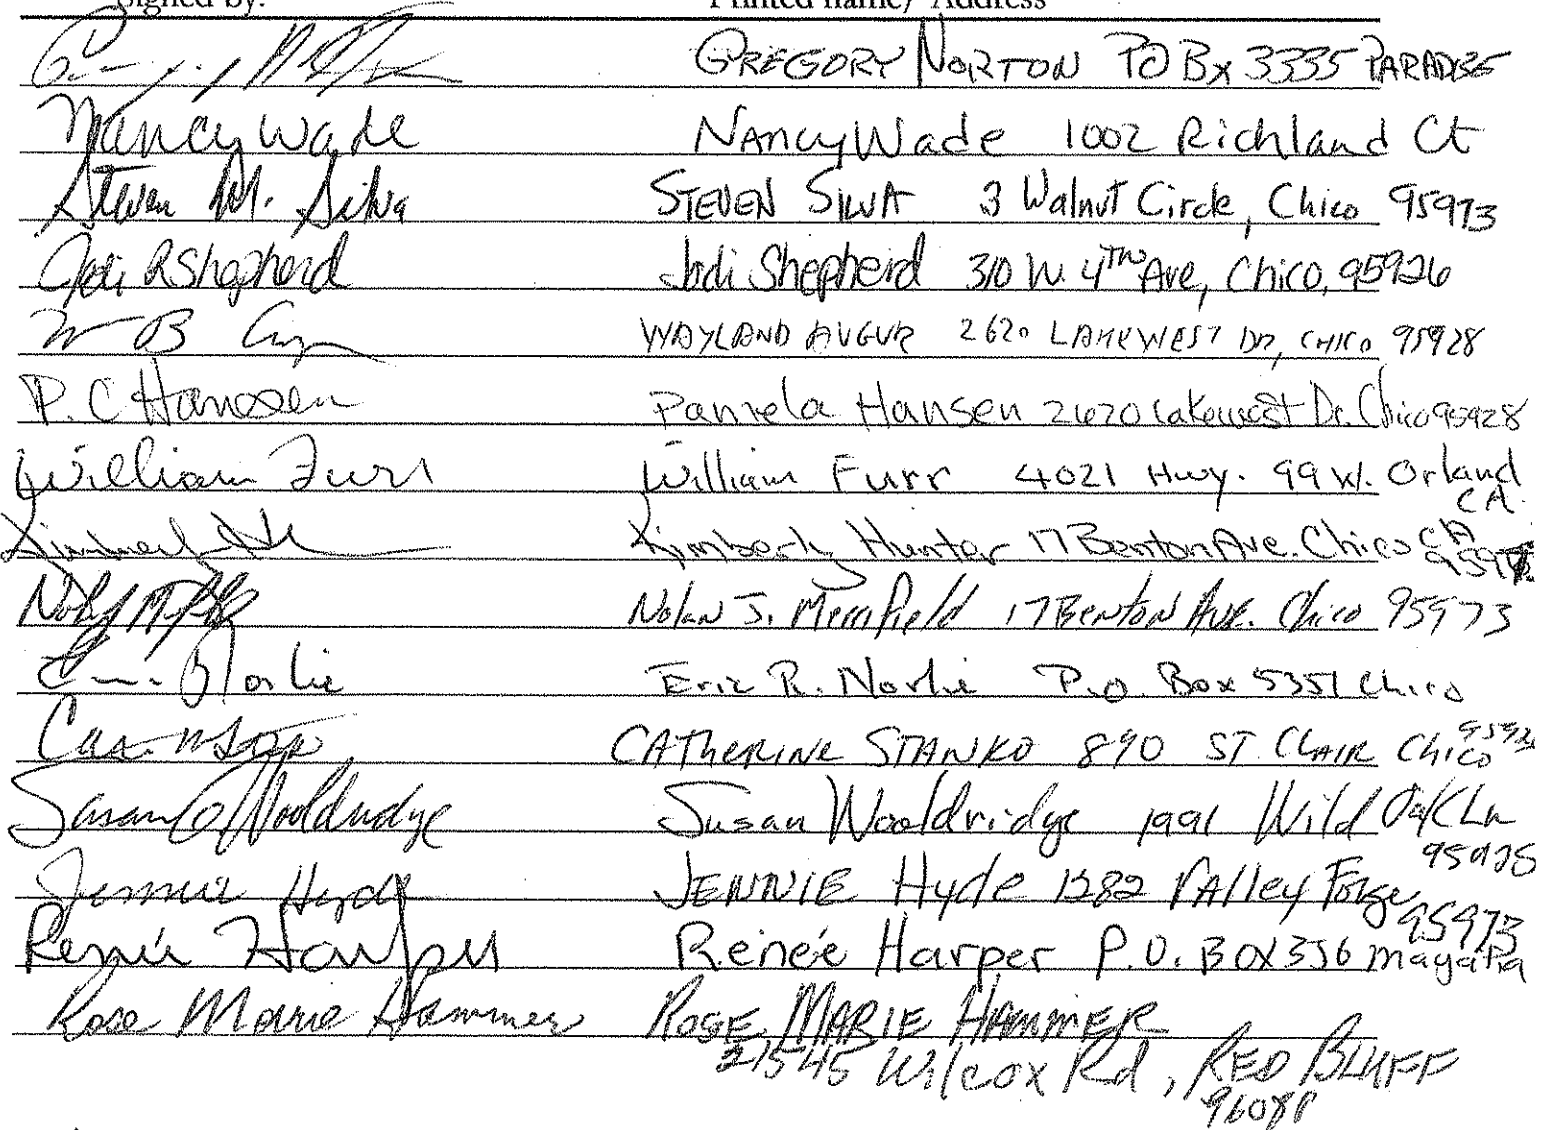 Signed by: Printed name/ Address
GREGORY NORTON PO Bx 3335 PARADISE
Nancy Wade NANCY Wade 1002 Richland Ct
Steven M. Silva STEVEN SILVA 3 Walnut Circle, Chico 95973
Jodi R Shepherd Jodi Shepherd 310 W. 4TH Ave, Chico, 95926
W B WAYLAND AUGUR 2620 LAKEWEST DR, CHICO 95928
P. C Hansen Pamela Hansen 2620 Lakewest Dr. Chico 95928
William Furr William Furr 4021 Hwy. 99 W. Orland
CA.
Kimberly Hunter 17 Benton Ave. Chico CA
Nolan J. Merrifield 17 Benton Ave. Chico 95973
Norlie Eric R. Norlie P.O. Box 5351 Chico
CATHERINE STANKO 890 ST. CLAIR Chico
Susan Wooldridge Susan Wooldridge 1991 Wild Oak Ln
Jennie Hyde JENNIE Hyde 1382 VAlley Forge
95973
Renée Harper Renée Harper P.O. BOX 356
Rose Marie Hammer ROSE MARIE HAMMER
21545 Wilcox Rd, RED BLUFF